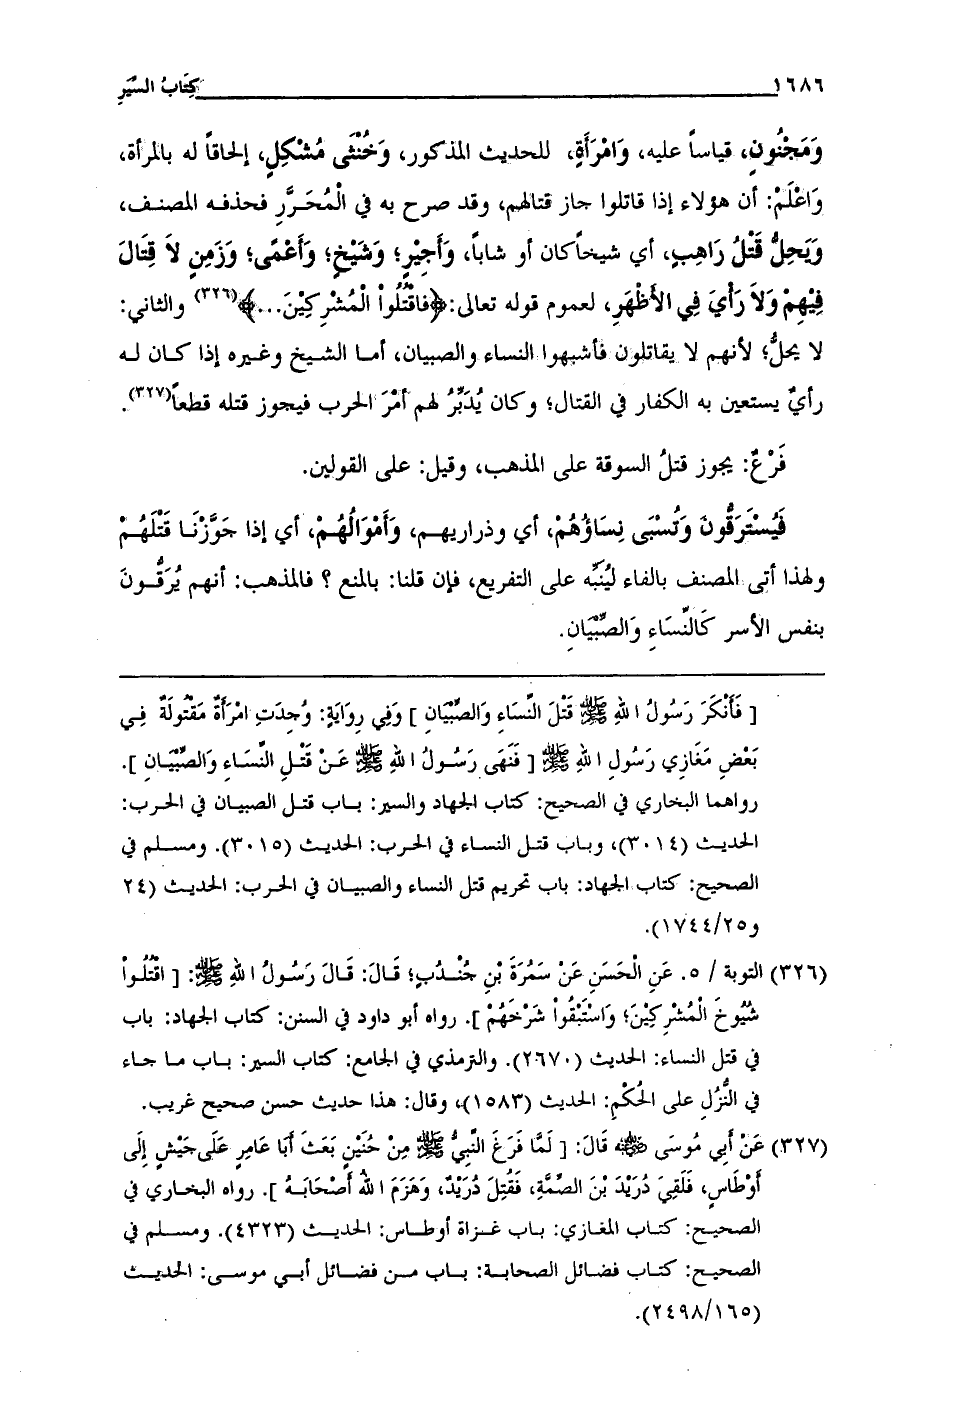 ١٦٨٦ كِتَابُ السِّيَرِ
وَمَجْنُونٍ، قياساً عليه، وَامْرَأَةٍ، للحديث المذكور، وَخُنْثَى مُشْكِلٍ، إلحاقاً له بالمرأة،
وَاعْلَمْ: أن هؤلاء إذا قاتلوا جاز قتالهم، وقد صرح به في الْمُحَرَّرِ فحذفه المصنف،
وَيَحِلُّ قَتْلُ رَاهِبٍ، أي شيخاً كان أو شاباً، وَأَجِيْرٍ؛ وَشَيْخٍ؛ وَأَعْمًى؛ وَزَمِنٍ لاَ قِتَالَ
فِيْهِمْ وَلاَ رَأْيَ فِي الأَظْهَرِ، لعموم قوله تعالى: ﴿فَاقْتُلُواْ الْمُشْرِكِيْنَ...﴾(٣٢٦) والثاني:
لا يحلُّ؛ لأنهم لا يقاتلون فأشبهوا النساء والصبيان، أما الشيخ وغيره إذا كان له
رأيٌ يستعين به الكفار في القتال؛ وكان يُدَبِّرُ لهم أمْرَ الحرب فيجوز قتله قطعاً(٣٢٧).
فَرْعٌ: يجوز قتلُ السوقة على المذهب، وقيل: على القولين.
فَيُسْتَرَقُّونَ وَتُسْبَى نِسَاؤُهُمْ، أي وذراريهم، وَأَمْوَالُهُمْ، أي إذا جَوَّزْنَا قَتْلَهُمْ
ولهذا أتى المصنف بالفاء لِيُنَبِّه على التفريع، فإن قلنا: بالمنع ؟ فالمذهب: أنهم يُرَقُّونَ
بنفس الأسر كَالنِّسَاءِ وَالصِّبْيَانِ.
[ فَأَنْكَرَ رَسُولُ اللهِ ﷺ قَتْلَ النِّسَاءِ وَالصِّبْيَانِ ] وَفِي رِوَايَةٍ: وُجِدَتِ امْرَأَةٌ مَقْتُولَةٌ فِي
بَعْضِ مَغَازِي رَسُولِ اللهِ ﷺ [ فَنَهَى رَسُولُ اللهِ ﷺ عَنْ قَتْلِ النِّسَاءِ وَالصِّبْيَانِ ].
رواهما البخاري في الصحيح: كتاب الجهاد والسير: باب قتل الصبيان في الحرب:
الحديث (٣٠١٤)، وباب قتل النساء في الحرب: الحديث (٣٠١٥). ومسلم في
الصحيح: كتاب الجهاد: باب تحريم قتل النساء والصبيان في الحرب: الحديث (٢٤
و١٧٤٤/٢٥).
(٣٢٦) التوبة / ٥. عَنِ الْحَسَنِ عَنْ سَمُرَةَ بْنِ جُنْدُبٍ؛ قَالَ: قَالَ رَسُولُ اللهِ ﷺ: [ اقْتُلُواْ
شُيُوخَ الْمُشْرِكِيْنَ؛ وَاسْتَبْقُواْ شَرْخَهُمْ ]. رواه أبو داود في السنن: كتاب الجهاد: باب
في قتل النساء: الحديث (٢٦٧٠). والترمذي في الجامع: كتاب السير: باب ما جاء
في النُّزُلِ على الحُكْمِ: الحديث (١٥٨٣)، وقال: هذا حديث حسن صحيح غريب.
(٣٢٧) عَنْ أَبِي مُوسَى ﷺ قَالَ: [ لَمَّا فَرَغَ النَّبِيُّ ﷺ مِنْ حُنَيْنٍ بَعَثَ أَبَا عَامِرٍ عَلَى جَيْشٍ إِلَى
أَوْطَاسٍ، فَلَقِيَ دُرَيْدَ بْنَ الصِّمَّةِ، فَقُتِلَ دُرَيْدٌ، وَهَزَمَ اللهُ أَصْحَابَهُ ]. رواه البخاري في
الصحيح: كتاب المغازي: باب غزاة أوطاس: الحديث (٤٣٢٣). ومسلم في
الصحيح: كتاب فضائل الصحابة: باب من فضائل أبي موسى: الحديث
(٢٤٩٨/١٦٥).